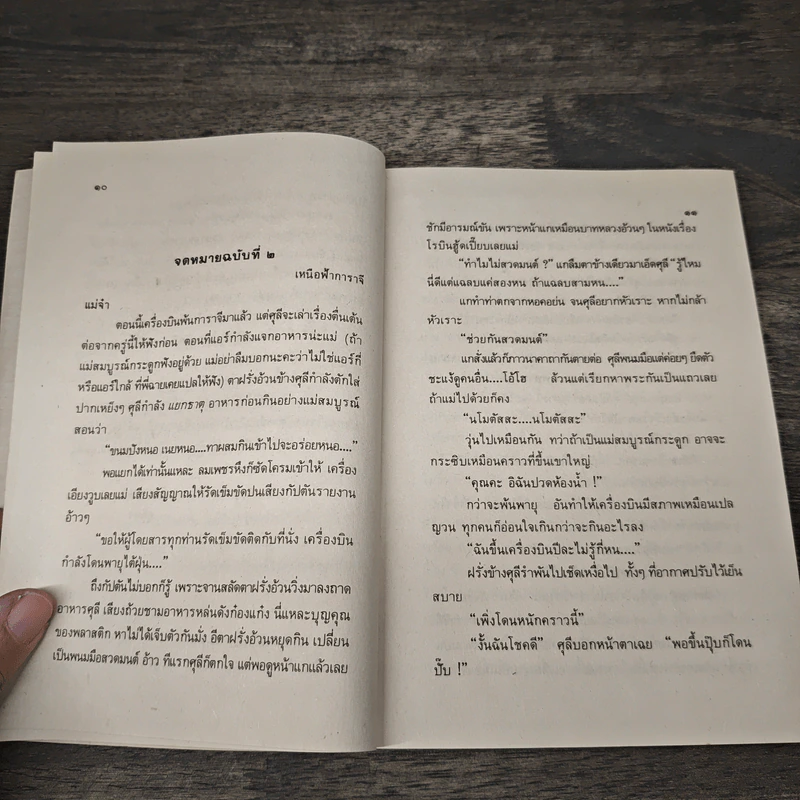 ๑๐
จดหมายฉบับที่ ๒
เหนือฟ้าการาจี
แม่จ๋า
ตอนนี้เครื่องบินพ้นการาจีมาแล้ว แต่ศุลีจะเล่าเรื่องตื่นเต้น
ต่อจากครู่นี้ให้ฟังก่อน ตอนที่แอร์กำลังแจกอาหารน่ะแม่ (ถ้า
แม่สมบูรณ์กระดูกฟังอยู่ด้วย แม่อย่าลืมบอกนะคะว่าไม่ใช่แอร์กี่
หรือแอร์ใกล้ ที่พี่ฉายเคยแปลให้ฟัง) ตาฝรั่งอ้วนข้างศุลีกำลังตักใส่
ปากเหยิงๆ ศุลีกำลัง แยกธาตุ อาหารก่อนกินอย่างแม่สมบูรณ์
สอนว่า
“ขนมปังหนอ เนยหนอ....ทาผสมกินเข้าไปจะอร่อยหนอ....”
พอแยกได้เท่านั้นแหละ ลมเพชรหึงก็ซัดโครมเข้าให้ เครื่อง
เอียงวูบเลยแม่ เสียงสัญญาณให้รัดเข็มขัดปนเสียงกัปตันรายงาน
อ้าวๆ
“ขอให้ผู้โดยสารทุกท่านรัดเข็มขัดติดกับที่นั่ง เครื่องบิน
กำลังโดนพายุไต้ฝุ่น....”
ถึงกัปตันไม่บอกก็รู้ เพราะจานสลัดตาฝรั่งอ้วนวิ่งมาลงถาด
อาหารศุลี เสียงถ้วยชามอาหารหล่นดังก๋องแก๋ง นี่แหละบุญคุณ
ของพลาสติก หาไม่ได้เจ็บตัวกันมั่ง อีตาฝรั่งอ้วนหยุดกิน เปลี่ยน
เป็นพนมมือสวดมนต์ อ้าว ทีแรกศุลีก็ตกใจ แต่พอดูหน้าแกแล้วเลย
๑๑
ชักมีอารมณ์ขัน เพราะหน้าแกเหมือนบาทหลวงอ้วนๆ ในหนังเรื่อง
โรบินฮู้ดเปี๊ยบเลยแม่
“ทำไมไม่สวดมนต์ ?” แกลืมตาข้างเดียวมาเอ็ดศุลี “รู้ไหม
นี่ดีแต่แฉลบแค่สองหน ถ้าแฉลบสามหน....”
แกทำท่าตกจากหอคอย่น จนศุลีอยากหัวเราะ หากไม่กล้า
หัวเราะ
“ช่วยกันสวดมนต์”
แกสั่งแล้วก็ภาวนาคาถากันตายต่อ ศุลีพนมมือแต่ค่อยๆ ยืดตัว
ชะแง้ดูคนอื่น....โอ้โฮ ล้วนแต่เรียกหาพระกันเป็นแถวเลย
ถ้าแม่ไปด้วยก็คง
“นโมตัสสะ....นโมตัสสะ”
วุ่นไปเหมือนกัน ทว่าถ้าเป็นแม่สมบูรณ์กระดูก อาจจะ
กระซิบเหมือนคราวที่ขึ้นเขาใหญ่
“คุณคะ อิฉันปวดห้องน้ำ !”
กว่าจะพ้นพายุ อันทำให้เครื่องบินมีสภาพเหมือนเปล
ญวน ทุกคนก็อ่อนใจเกินกว่าจะกินอะไรลง
“ฉันขึ้นเครื่องบินปีละไม่รู้กี่หน....”
ฝรั่งข้างศุลีรำพันไปเช็ดเหงื่อไป ทั้งๆ ที่อากาศปรับไว้เย็น
สบาย
“เพิ่งโดนหนักคราวนี้”
“งั้นฉันโชคดี” ศุลีบอกหน้าตาเฉย “พอขึ้นปุ๊บก็โดน
ปั๊บ !”